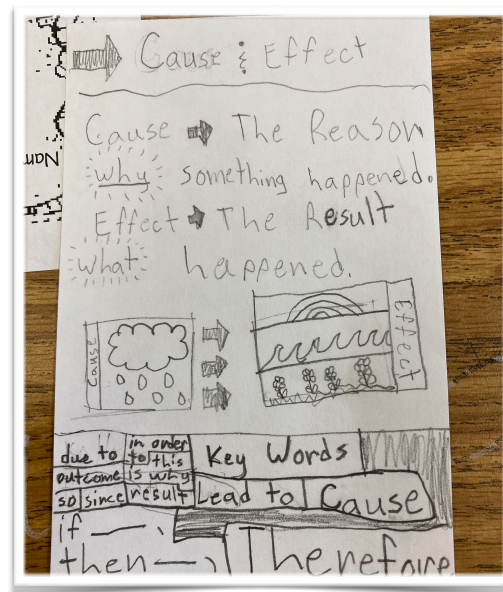 Cause & Effect
Cause → The Reason
why something happened.
Effect → The Result
what happened.
Cause
Effect
due to
in order to
this is why
outcome
so
since
result
Key Words
Lead to
Cause
if —,
then —,
Therefore